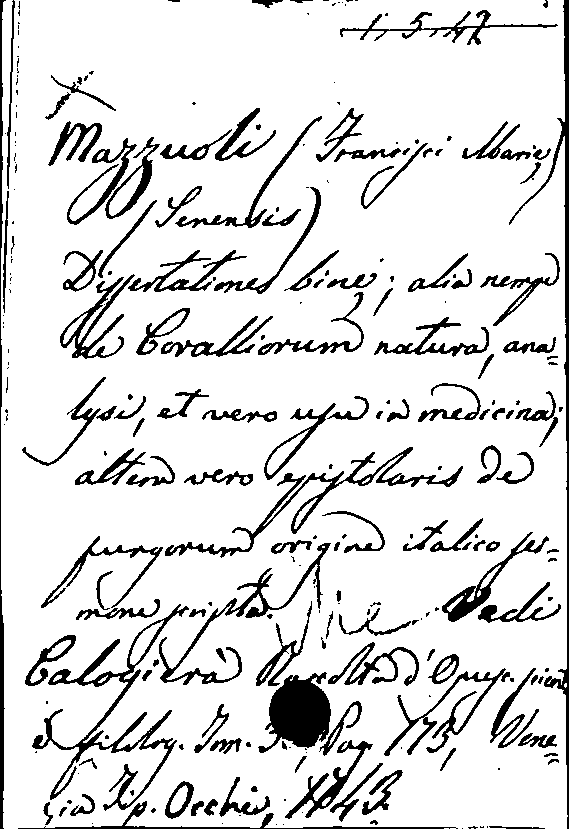 1.5.47
Mazzuoli (Francisci Mariæ)
(Senensis)
Dissertationes binę; alia nempe
de Coralliorum natura, ana=
lysi, et vero usu in medicina;
altera vero epistolaris de
fungorum origine italico ser=
mone scripta. Vedi
Calogierà Raccolta d'Opusc. scient.
e filolog. Tom. Pag. 173, Vene=
zia Tip. Occhi, 1743.